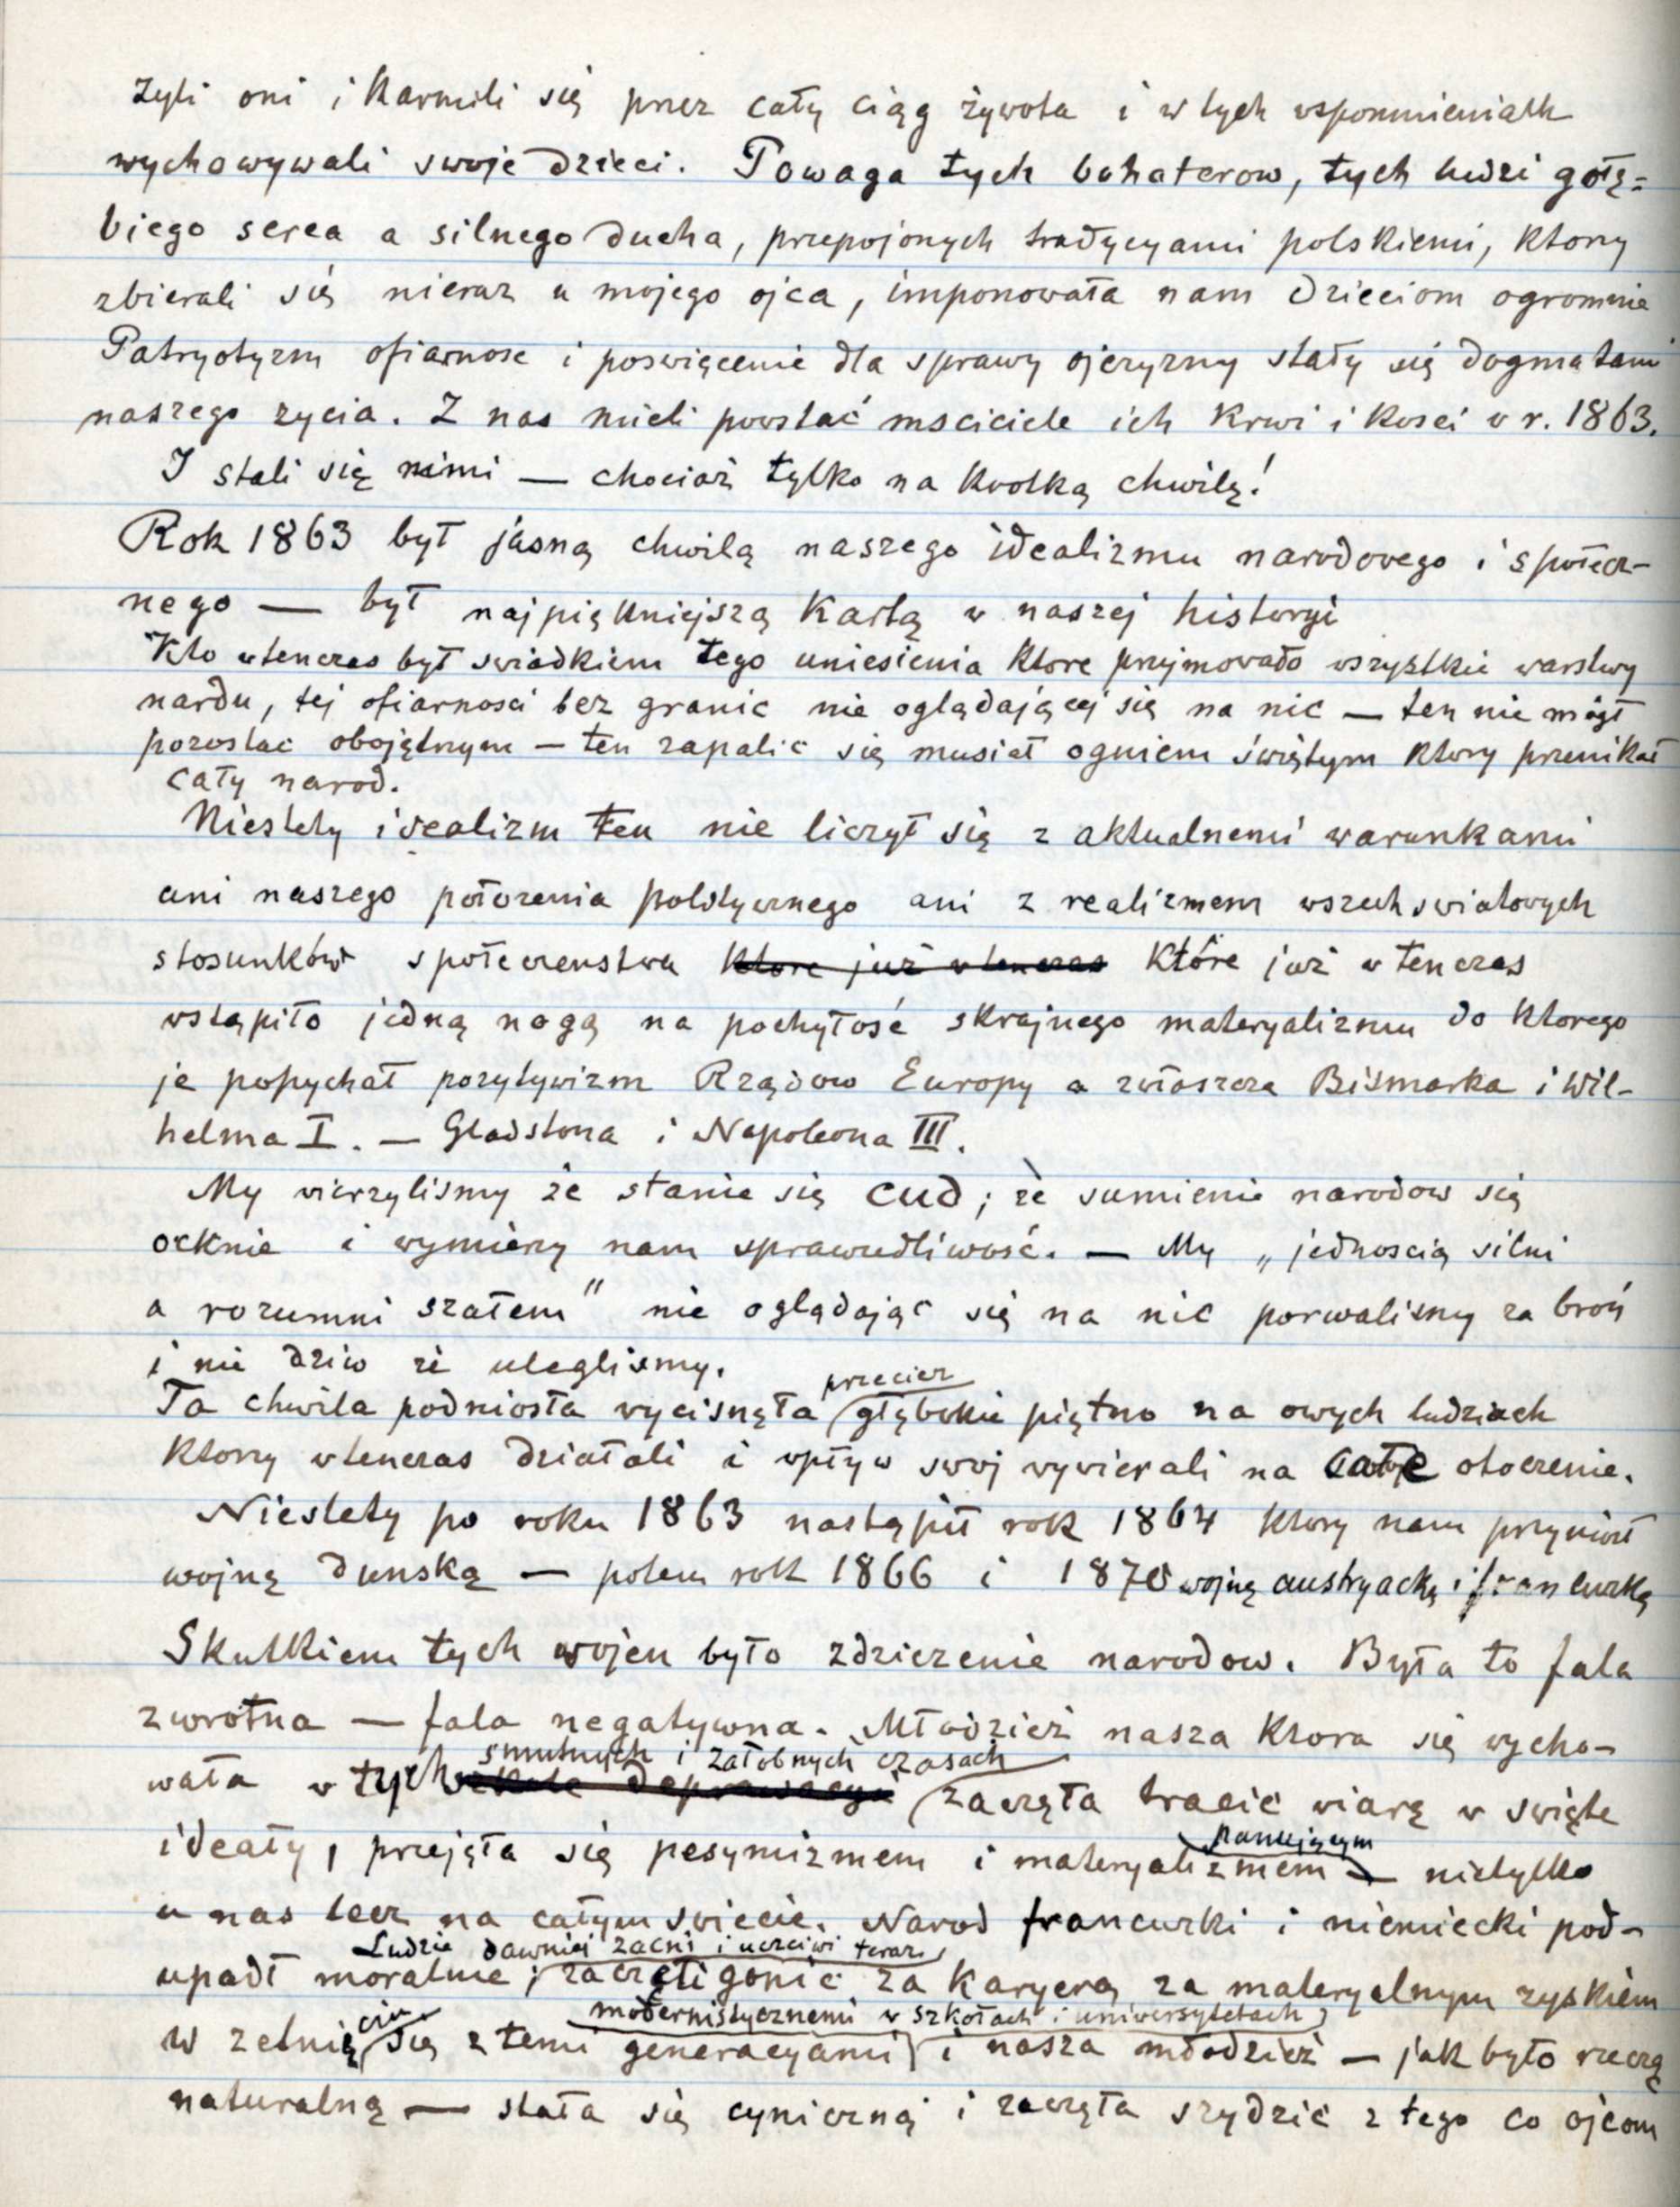 żyli oni i karmili się przez cały ciąg żywota i w tych wspomnieniach
wychowywali swoje dzieci. Powaga tych bohaterow, tych ludzi gołę=
biego serca a silnego ducha, przepojonych tradycyami polskiemi, ktorzy
zbierali się nieraz u mojego ojca, imponowała nam dzieciom ogromnie
Patryotyzm ofiarnosc i poswięcenie dla sprawy ojczyzny stały się dogmatami
naszego zycia. Z nas mieli powstać msciciele ich krwi i kosci w r. 1863.
I stali się nimi — chociaż tylko na krotką chwilę!
Rok 1863 był jasną chwilą naszego idealizmu narodowego i społecz-
nego — był najpiękniejszą kartą w naszej historyi
Kto wtenczas był swiadkiem tego uniesienia ktore przejmowało wszystkie warstwy
nardu, tej ofiarnosci bez granic nie oglądającej się na nic — ten nie mógł
pozostac obojętnym — ten zapalic się musiał ogniem świętym ktory przenikał
cały narod.
Niestety idealizm ten nie liczył się z aktualnemi warunkami
ani naszego połozenia politycznego ani z realizmem wszechswiatowych
stosunków społeczenstwa ktore już wtenczas które już wtenczas
wstąpiło jedną nogą na pochyłość skrajnego materyalizmu do ktorego
je popychał pozytywizm Rządow Europy a zwłaszcza Bismarka i Wil-
helma I. — Gladstona i Napoleona III.
My wierzylismy że stanie się cud; że sumienie narodow się
ocknie i wymierzy nam sprawiedliwość. — My „jednoscią silni
a rozumni szałem" nie oglądając się na nic porwalismy za broń
i nie dziw że uleglismy.
przeciez
Ta chwila podniosła wycisnęła głębokie piętno na owych ludziach
ktorzy wtenczas działali i wpływ swoj wywierali na całe otoczenie.
Niestety po roku 1863 nastąpił rok 1864 ktory nam przyniosł
wojnę dunską — potem rok 1866 i 1870 wojnę austryacką i francuzką
Skutkiem tych wojen było zdziczenie narodow. Była to fala
zwrotna — fala negatywna. Młodzież nasza ktora się wycho-
smutnych i żałobnych czasach
wała w tych szkole deprawacyi zaczęła tracić wiarę w swięte
ideały, przejęła się pesymizmem i materyalizmem — nietylko
panującym
u nas lecz na całym swiecie. Narod francuzki i niemiecki pod-
Ludzie dawniej zacni i uczciwi teraz
upadł moralnie; zaczęli gonić za karyerą za materyalnym zyskiem
modernistycznemi w szkołach i uniwersytetach
W zetknięciu się z temi generacyami i nasza młodzież — jak było rzeczą
naturalną — stała się cyniczną i zaczęła szydzić z tego co ojcom